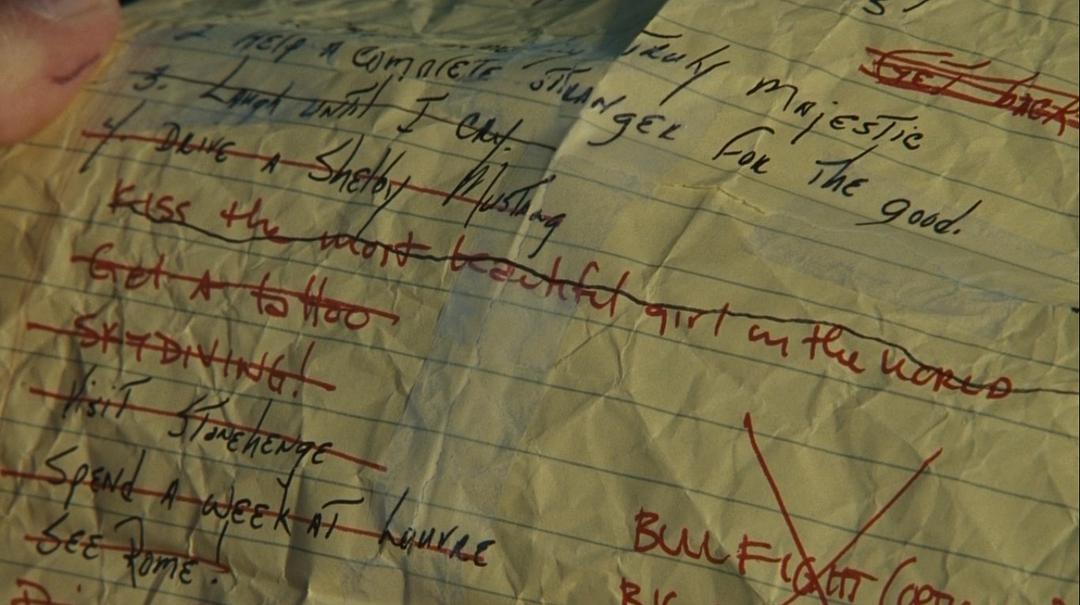 2 HELP A COMPLETE STRANGER FOR THE good.
TRULY MAJESTIC
3. Laugh until I CRY.
4 DRIVE A Shelby Mustang
Kiss the most beautiful girl in the WORLD
Get A tattoo
SKYDIVING!
Visit Stonehenge
Spend A WEEK AT Louvre
SEE Rome!
Get back
BULL FIGHT